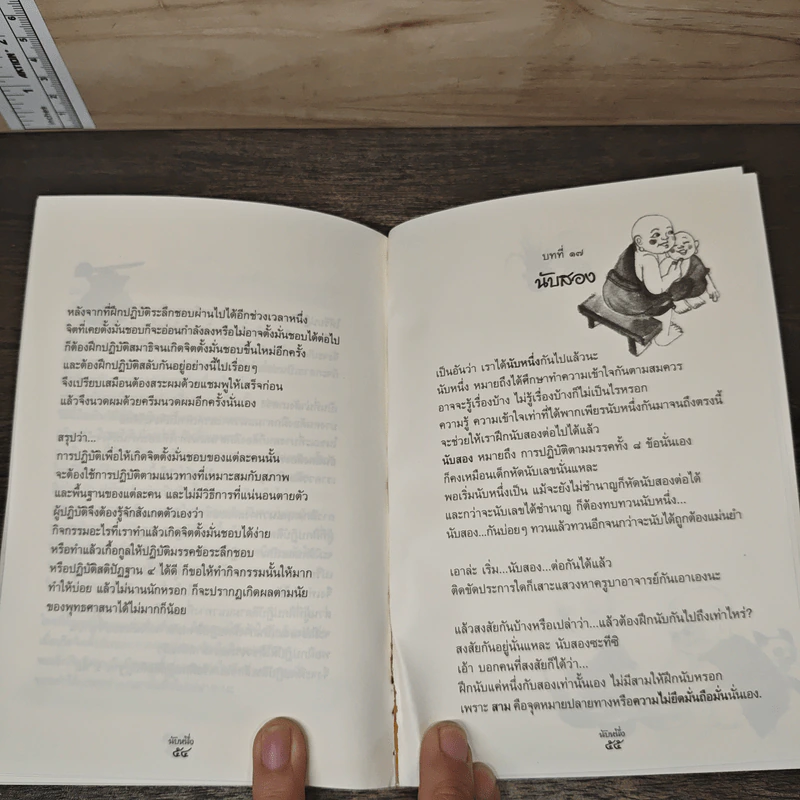 หลังจากที่ฝึกปฏิบัติระลึกชอบผ่านไปได้อีกช่วงเวลาหนึ่ง
จิตที่เคยตั้งมั่นชอบก็จะอ่อนกำลังลงหรือไม่อาจตั้งมั่นชอบได้ต่อไป
ก็ต้องฝึกปฏิบัติสมาธิจนเกิดจิตตั้งมั่นชอบขึ้นใหม่อีกครั้ง
และต้องฝึกปฏิบัติสลับกันอยู่อย่างนี้ไปเรื่อยๆ
จึงเปรียบเสมือนต้องสระผมด้วยแชมพูให้เสร็จก่อน
แล้วจึงนวดผมด้วยครีมนวดผมอีกครั้งนั่นเอง
สรุปว่า...
การปฏิบัติเพื่อให้เกิดจิตตั้งมั่นชอบของแต่ละคนนั้น
จะต้องใช้การปฏิบัติตามแนวทางที่เหมาะสมกับสภาพ
และพื้นฐานของแต่ละคน และไม่มีวิธีการที่แน่นอนตายตัว
ผู้ปฏิบัติจึงต้องรู้จักสังเกตตัวเองว่า
กิจกรรมอะไรที่เราทำแล้วเกิดจิตตั้งมั่นชอบได้ง่าย
หรือทำแล้วเกื้อกูลให้ปฏิบัติมรรคข้อระลึกชอบ
หรือปฏิบัติสติปัฏฐาน ๔ ได้ดี ก็ขอให้ทำกิจกรรมนั้นให้มาก
ทำให้บ่อย แล้วไม่นานนักหรอก ก็จะปรากฏเกิดผลตามนัย
ของพุทธศาสนาได้ไม่มากก็น้อย
นับหนึ่ง
๕๔
บทที่ ๑๗
นับสอง
เป็นอันว่า เราได้นับหนึ่งกันไปแล้วนะ
นับหนึ่ง หมายถึงได้ศึกษาทำความเข้าใจกันตามสมควร
อาจจะรู้เรื่องบ้าง ไม่รู้เรื่องบ้างก็ไม่เป็นไรหรอก
ความรู้ ความเข้าใจเท่าที่ได้พากเพียรนับหนึ่งกันมาจนถึงตรงนี้
จะช่วยให้เราฝึกนับสองต่อไปได้แล้ว
นับสอง หมายถึง การปฏิบัติตามมรรคทั้ง ๘ ข้อนั่นเอง
ก็คงเหมือนเด็กหัดนับเลขนั่นแหละ
พอเริ่มนับหนึ่งเป็น แม้จะยังไม่ชำนาญก็หัดนับสองต่อได้
และกว่าจะนับเลขได้ชำนาญ ก็ต้องทบทวนนับหนึ่ง...
นับสอง...กันบ่อยๆ ทวนแล้วทวนอีกจนกว่าจะนับได้ถูกต้องแม่นยำ
เอาล่ะ เริ่ม...นับสอง...ต่อกันได้แล้ว
ติดขัดประการใดก็เสาะแสวงหาครูบาอาจารย์กันเอาเองนะ
แล้วสงสัยกันบ้างหรือเปล่าว่า...แล้วต้องฝึกนับกันไปถึงเท่าไหร่?
สงสัยกันอยู่นั่นแหละ นับสองซะทีซิ
เอ้า บอกคนที่สงสัยก็ได้ว่า...
ฝึกนับแค่หนึ่งกับสองเท่านั้นเอง ไม่มีสามให้ฝึกนับหรอก
เพราะ สาม คือจุดหมายปลายทางหรือความไม่ยึดมั่นถือมั่นนั่นเอง.
นับหนึ่ง
๕๕